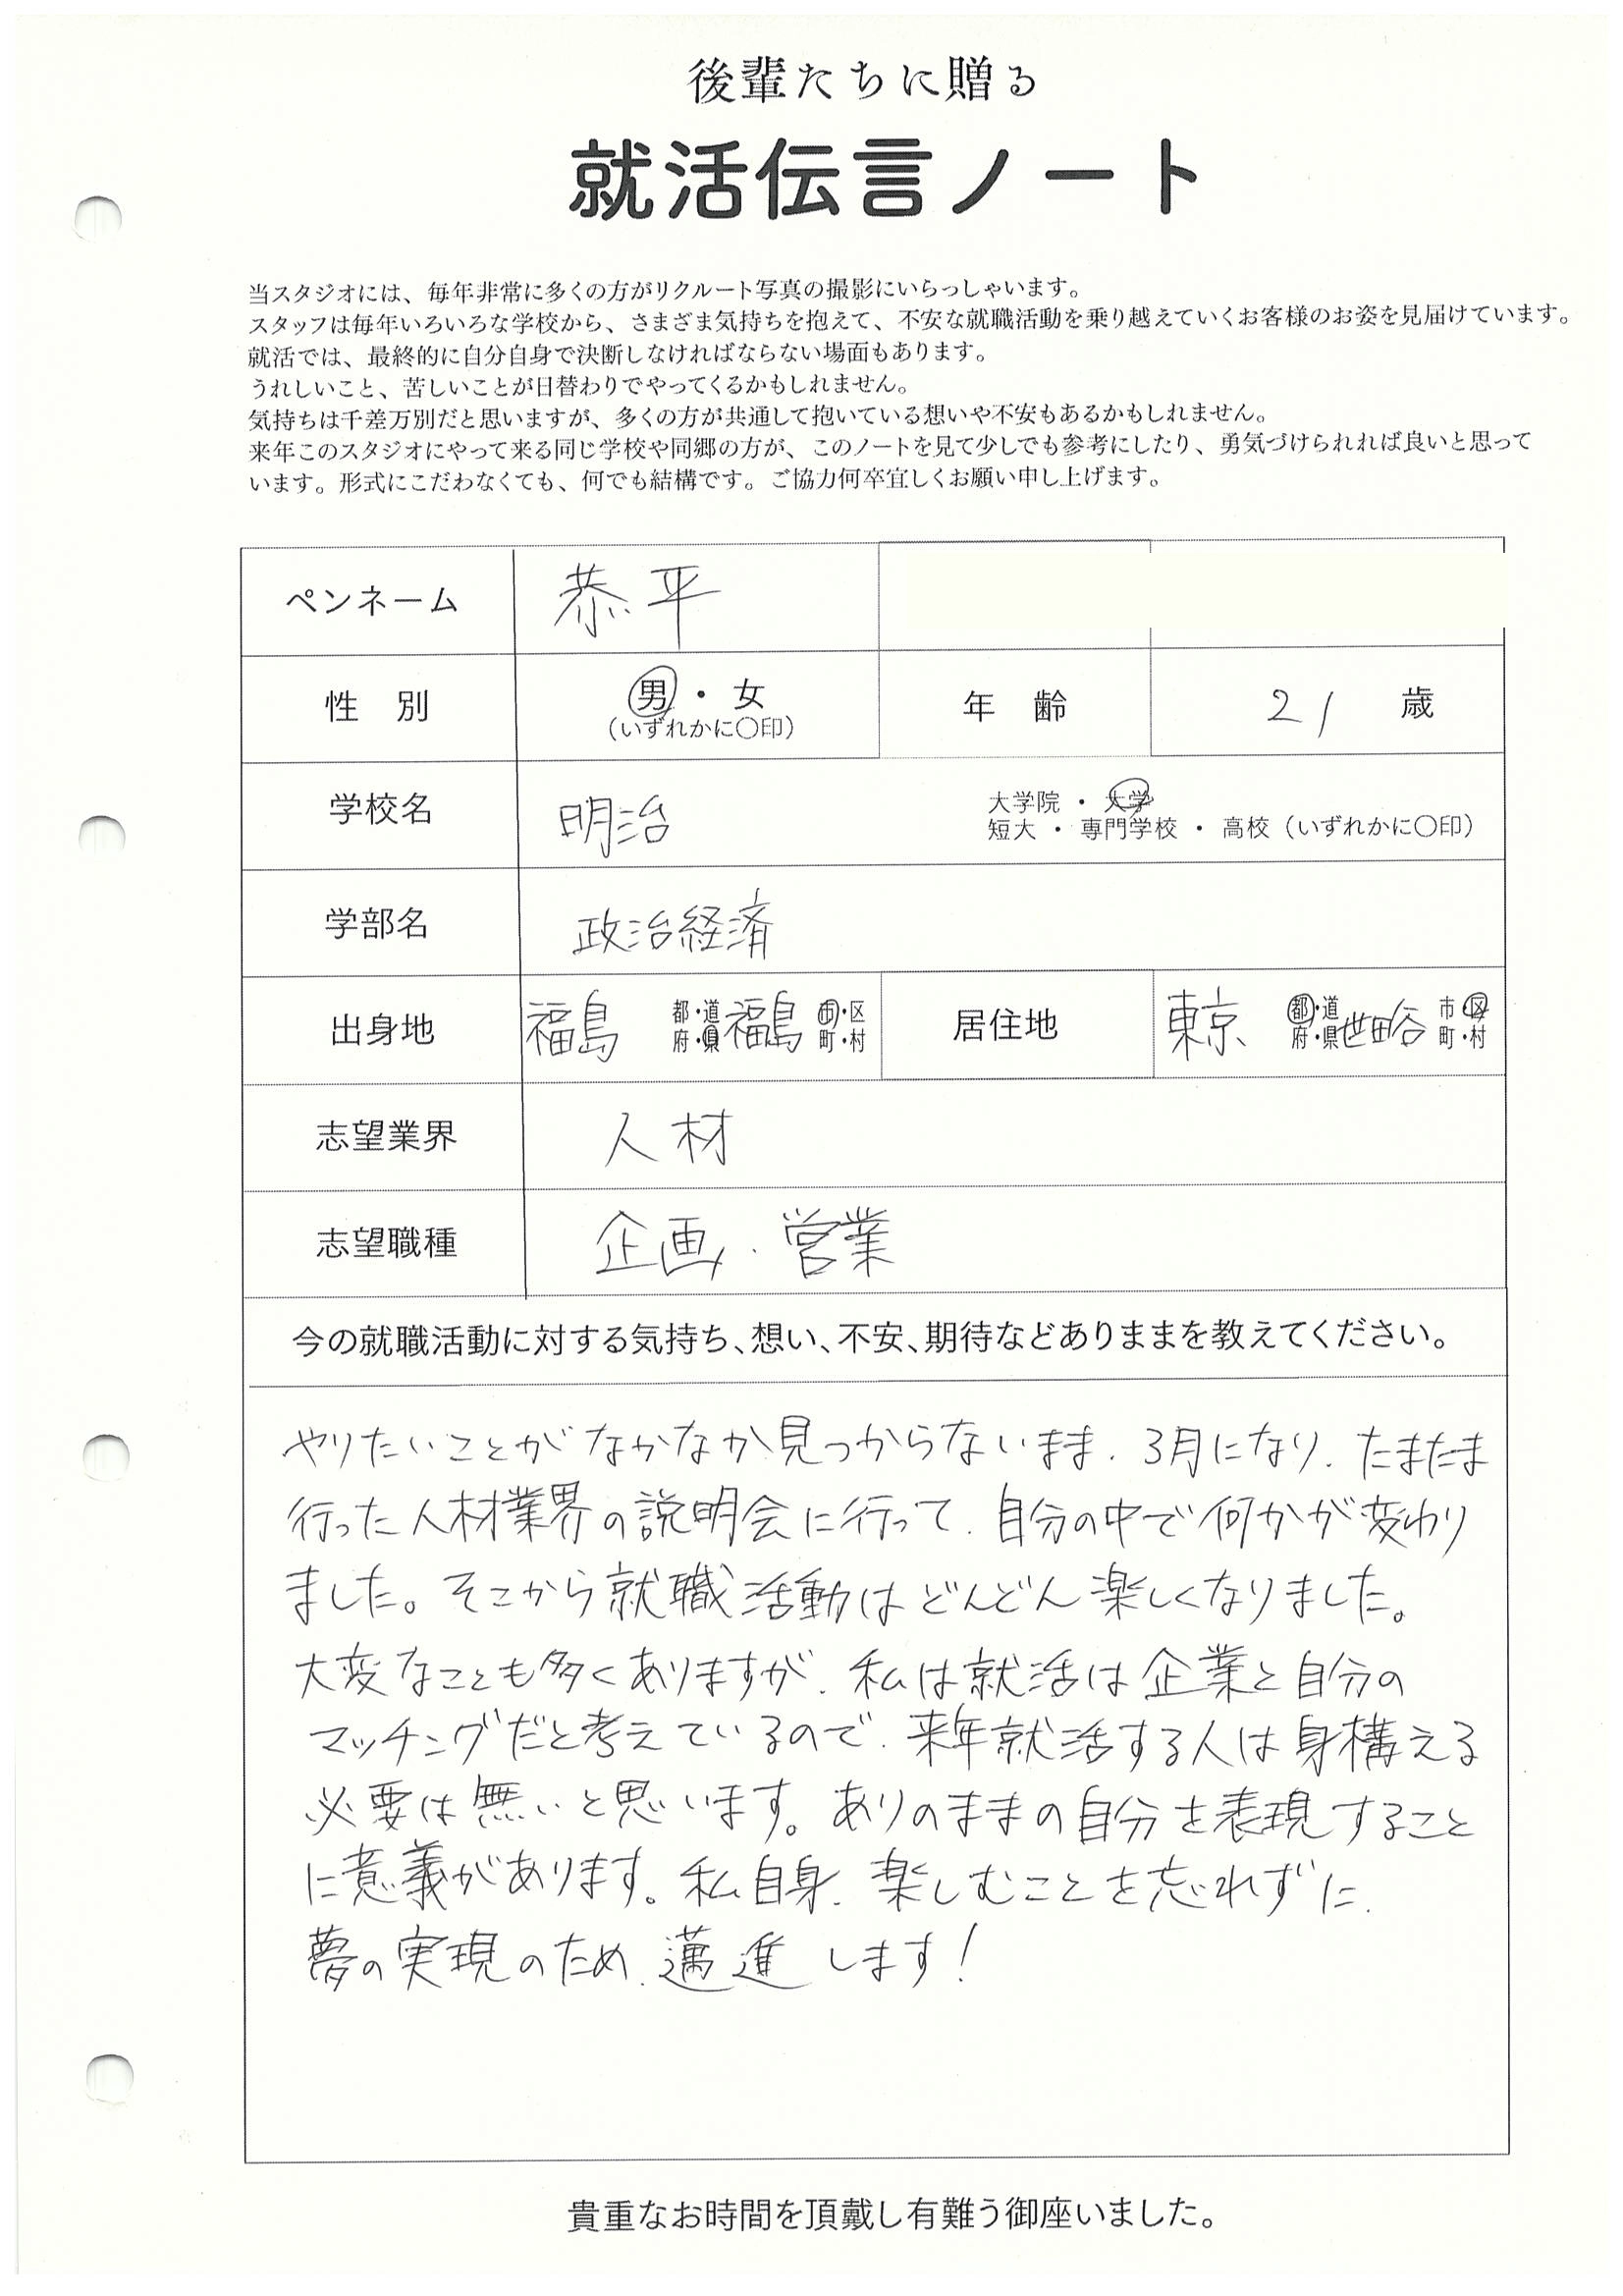 後輩たちに贈る
就活伝言ノート
当スタジオには、毎年非常に多くの方がリクルート写真の撮影にいらっしゃいます。
スタッフは毎年いろいろな学校から、さまざま気持ちを抱えて、不安な就職活動を乗り越えていくお客様のお姿を見届けています。
就活では、最終的に自分自身で決断しなければならない場面もあります。
うれしいこと、苦しいことが日替わりでやってくるかもしれません。
気持ちは千差万別だと思いますが、多くの方が共通して抱いている想いや不安もあるかもしれません。
来年このスタジオにやって来る同じ学校や同郷の方が、このノートを見て少しでも参考にしたり、勇気づけられれば良いと思って
います。形式にこだわなくても、何でも結構です。ご協力何卒宜しくお願い申し上げます。
ペンネーム 恭平
性 別 男・女 年 齢 21 歳
(いずれかに〇印)
学校名 明治 大学院 ・ 大学
短大 ・ 専門学校 ・ 高校 (いずれかに〇印)
学部名 政治経済
出身地 福島 都・道 府・県 福島 市・区 町・村 居住地 東京 都・道 府・県 世田谷 市・区 町・村
志望業界 人材
志望職種 企画・営業
今の就職活動に対する気持ち、想い、不安、期待などありままを教えてください。
やりたいことがなかなか見つからないまま、3月になり、たまたま
行った人材業界の説明会に行って、自分の中で何かが変わり
ました。そこから就職活動はどんどん楽しくなりました。
大変なことも多くありますが、私は就活は企業と自分の
マッチングだと考えているので、来年就活する人は身構える
必要は無いと思います。ありのままの自分を表現すること
に意義があります。私自身、楽しむことを忘れずに、
夢の実現のため、邁進します!
貴重なお時間を頂戴し有難う御座いました。